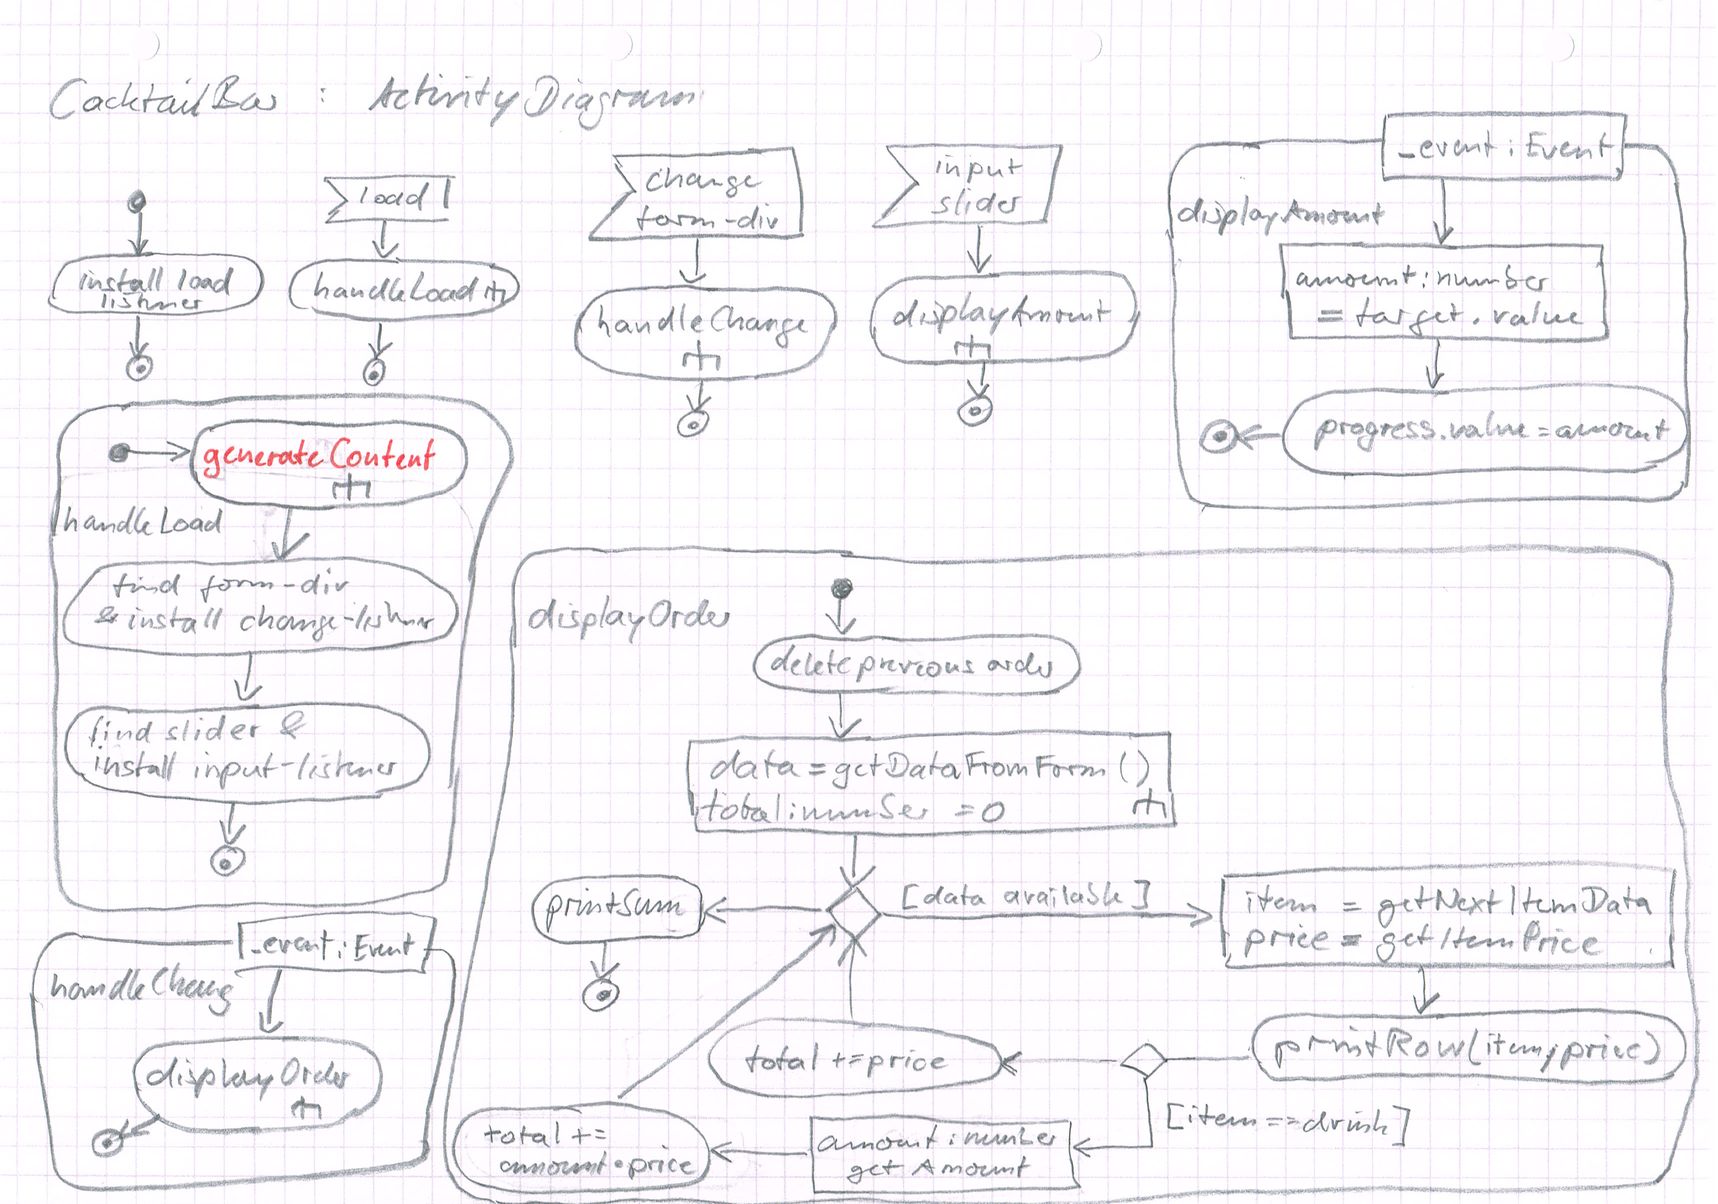 CacktailBar : ActivityDiagram
install load
listner
load
handleLoad
change
form-div
handleChange
input
slider
displayAmount
_event : Event
displayAmount
amount : number
= target.value
progress.value = amount
generateContent
handleLoad
find form-div
& install change-listner
find slider &
install input-listener
_event : Event
handleChang
displayOrder
displayOrder
delete previous order
data = getDataFromForm ()
total : number = 0
printSum
[data available]
item = getNextItemData
price = getItemPrice
printRow(item, price)
total += price
[item == drink]
amount : number
get Amount
total +=
amount * price